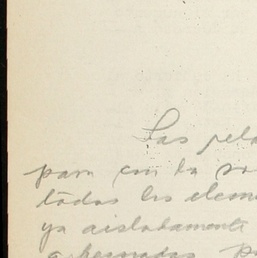 Las pela
para con la so
todos los eleme
ya aisladamente